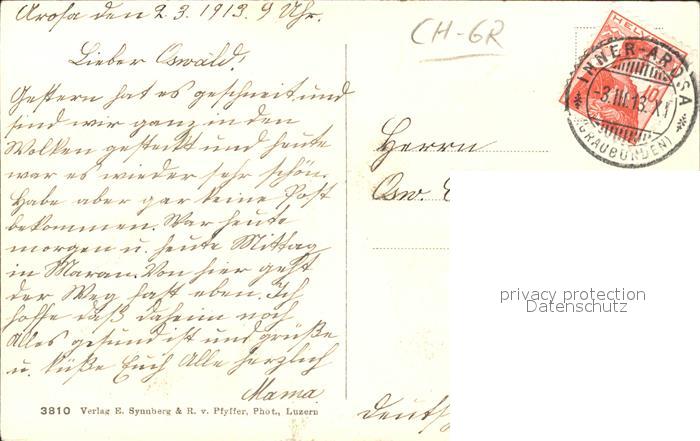 Arosa den 2.3.1913. 9 Uhr.
Lieber Oswald!
Gestern hat es geschneit und
sind wir ganz in den
Wolken gesteckt und heute
war es wieder sehr schön.
Habe aber gar keine Post
bekommen. War heute
morgen u. heute Mittag
in Maran. Von hier geht
der Weg fast eben. Ich
hoffe daß daheim noch
Alles gesund ist und grüße
u. küße Euch Alle herzlich
Mama
3810 Verlag E. Synnberg & R. v. Pfyffer, Phot., Luzern
CH-GR
HELVE
10
INNER-AROSA
-3.III.13.XI
(GRAUBÜNDEN)
Herrn
Osw.
privacy protection
Datenschutz
Deuts